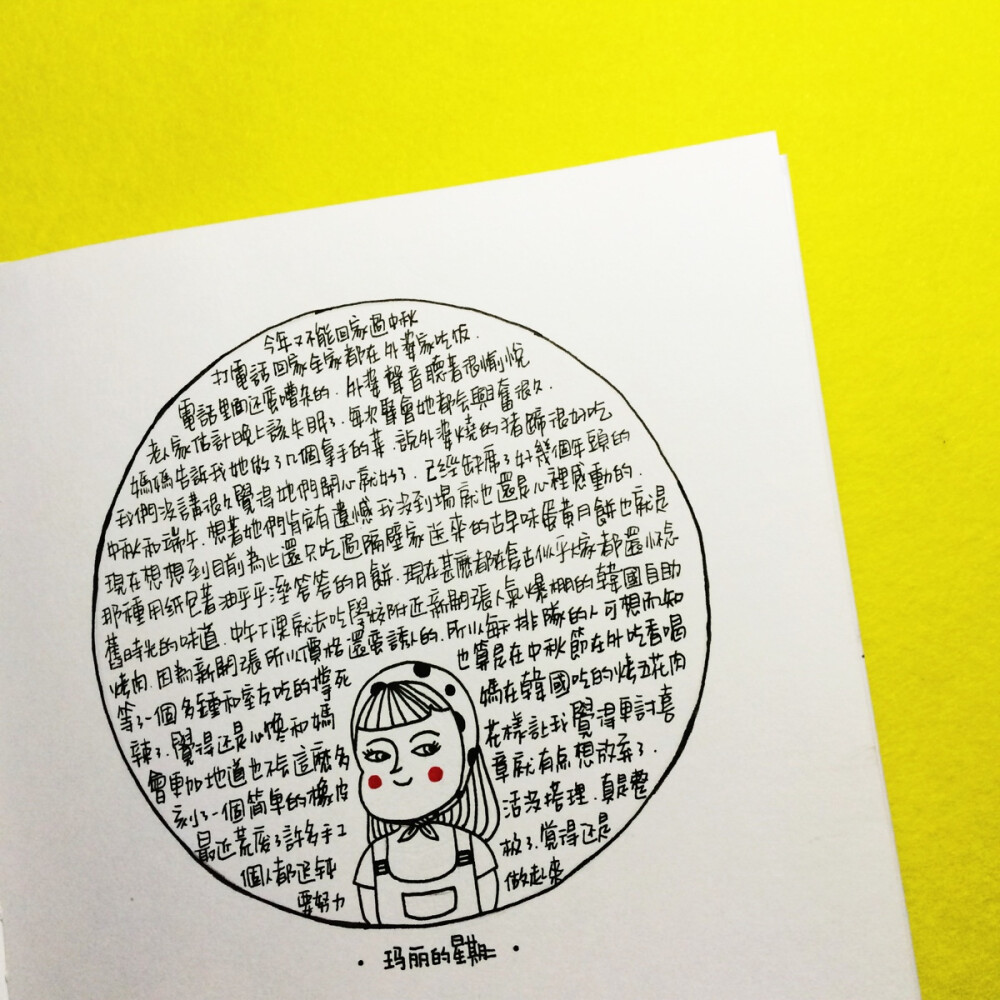 今年又不能回家過中秋
打電話回家全家都在外婆家吃饭.
電話里面还蛮嘈杂的.外婆聲音聽著很愉悅
老人家估計晚上該失眠了.每次聚會她都会興奮很久.
媽媽告訴我她做了几個拿手的菜.說外婆燒的猪蹄很好吃
我們沒講很久覺得她們開心就好了.已經缺席了好幾個年頭的
中秋和端午.想著她們肯定有遺憾我沒到場就也還是心裡感動的.
現在想想到目前為止還只吃過隔壁家送來的古早味蛋黃月餅也就是
那種用纸包著油乎乎溼答答的月餅.現在甚麼都在复古似乎大家都還怀念
舊時光的味道.中午下课就去吃學校附近新開張人氣爆棚的韓國自助
烤肉.因為新開張所以價格還蠻誘人的.所以每天排隊的人可想而知
等了一個多鍾和室友吃的撐死 也算是在中秋節在外吃香喝
辣了.覺得还是心馋和媽 媽在韓國吃的烤五花肉
會更加地道也不会這麼多 花樣讓我覺得更討喜
刻了一個簡單的橡皮 章就有点想放弃了.
最近荒废了許多手工 活没搭理.真是整
個人都迟钝 板了.覺得还是
要努力 做起來
·玛丽的星期二·